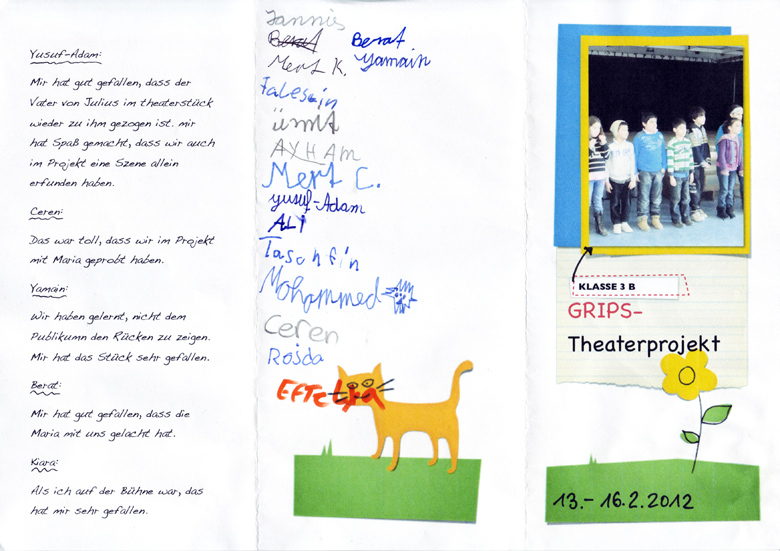 Yusuf-Adam:
Mir hat gut gefallen, dass der
Vater von Julius im theaterstück
wieder zu ihm gezogen ist. mir
hat Spaß gemacht, dass wir auch
im Projekt eine Szene allein
erfunden haben.
Ceren:
Das war toll, dass wir im Projekt
mit Maria geprobt haben.
Yamain:
Wir haben gelernt, nicht dem
Publikumn den Rücken zu zeigen.
Mir hat das Stück sehr gefallen.
Berat:
Mir hat gut gefallen, dass die
Maria mit uns gelacht hat.
Kiara:
Als ich auf der Bühne war, das
hat mir sehr gefallen.
Jannis
Berat Berat
Mert K. Yamain
Ümit
AYHAM
Mert C.
yusuf-Adam
ALI
Taschfin
Mohammed
Ceren
Rojda
KLASSE 3 B
GRIPS-
Theaterprojekt
13.-16.2.2012